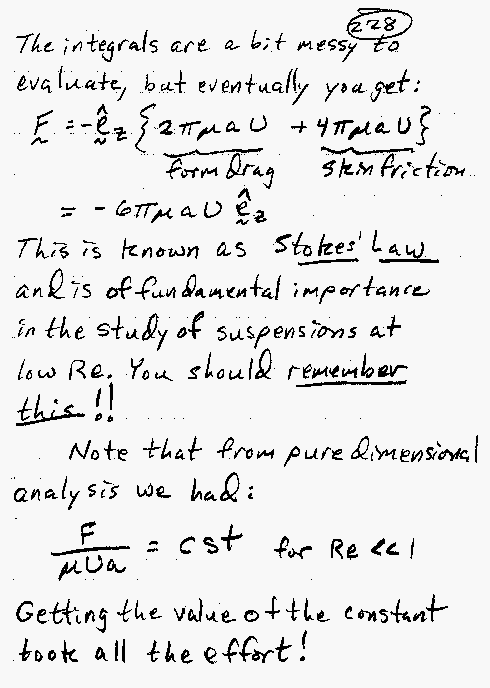 228
The integrals are a bit messy to
evaluate, but eventually you get:
F = -ê_z { 2πμaU + 4πμaU }
form drag skin friction
= -6πμaU ê_z
This is known as Stokes' Law
and is of fundamental importance
in the study of suspensions at
low Re. You should remember
this!!
Note that from pure dimensional
analysis we had:
F/μUa = cst for Re << 1
Getting the value of the constant
took all the effort!